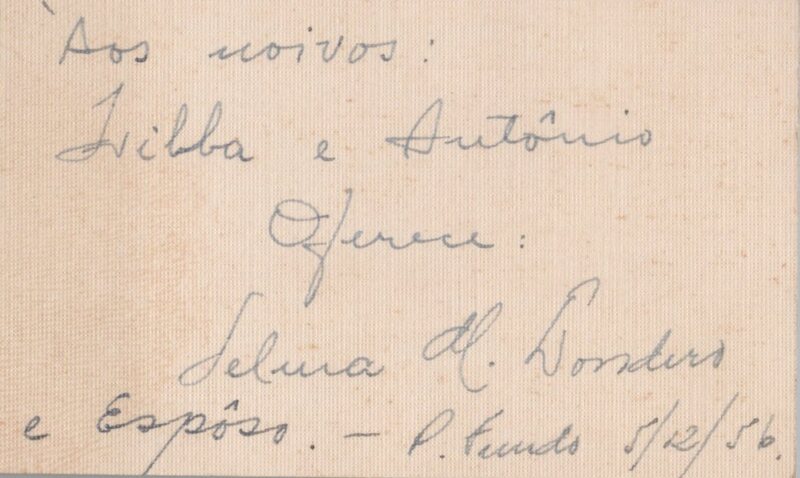 Aos noivos:
e Antônio
Oferece:
Selma M.
e Espôso. — P. Fundo 5/12/56.